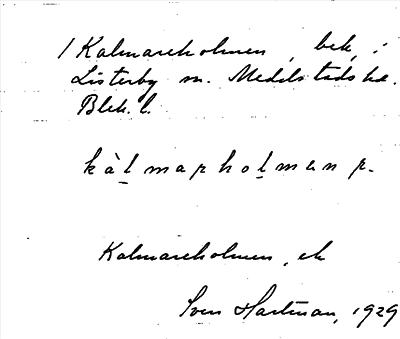 1 Kalmareholmen, bek, i
Listerby sn. Medelstads hd.
Blek. l.
kàl̲marhol̲mən
Kalmareholmen, ek
Sven Hartman, 1929